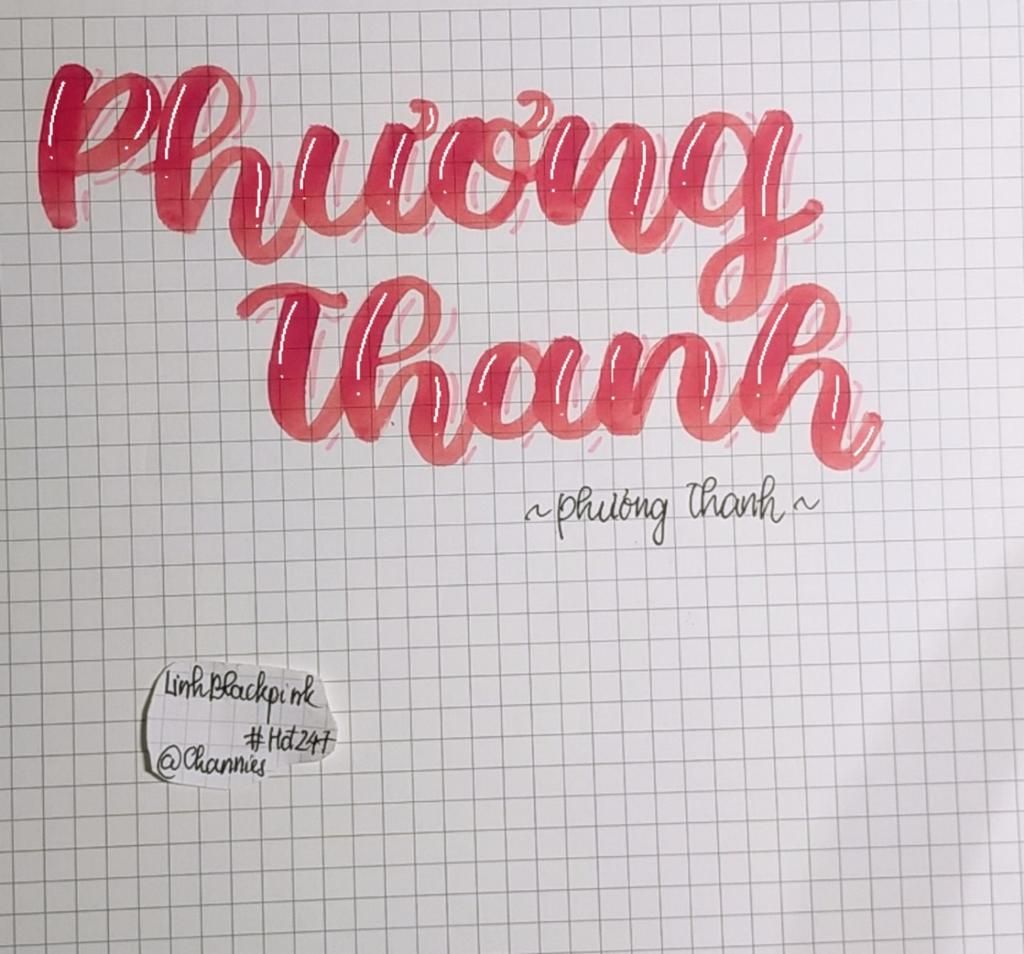 Phương
Thanh
~phương Thanh~
LinhBlackpink
#Hot247
@Channies